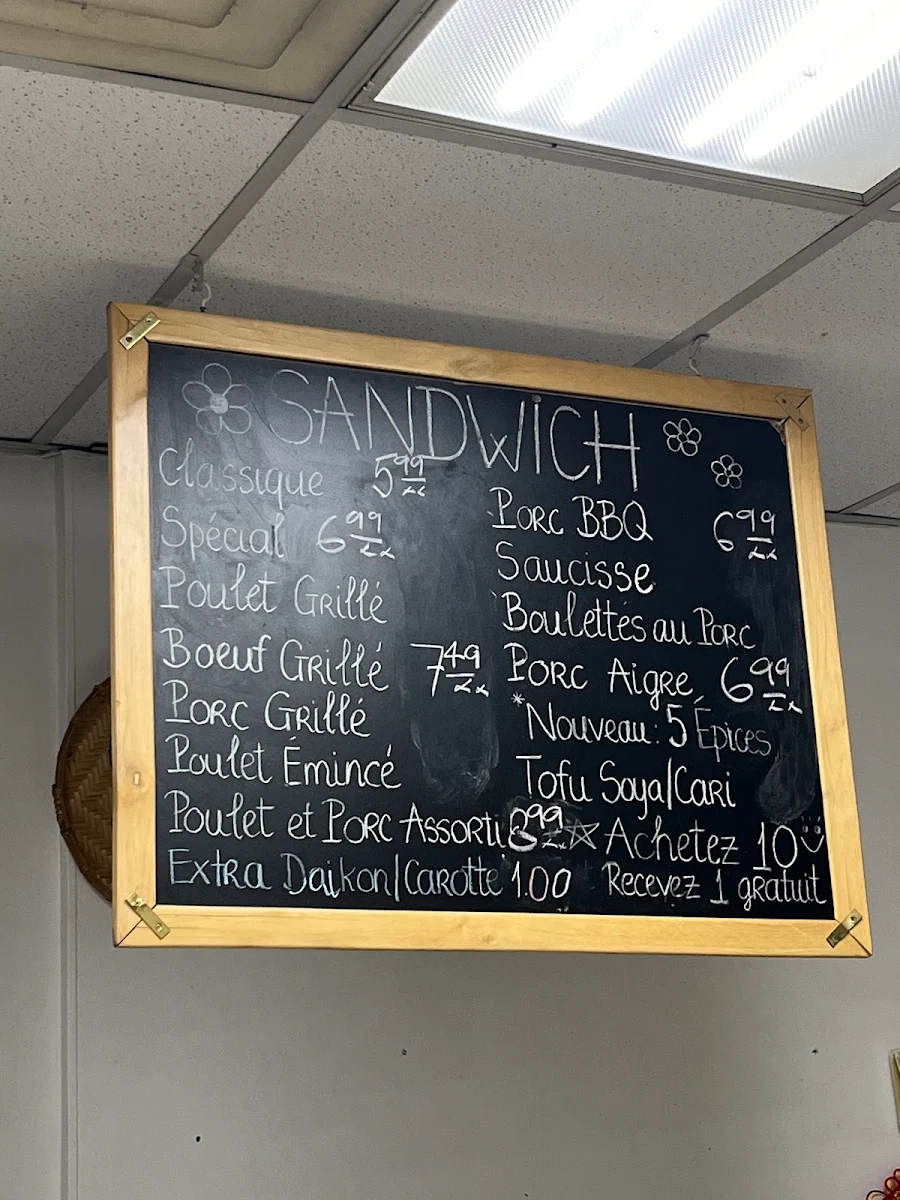 SANDWiCH
Classique 5.99
Spécial 6.99
Poulet Grillé
Boeuf Grillé 7.49
Porc Grillé
Poulet Émincé
Poulet et Porc Assorti 8.99
Extra Daikon/Carotte 1.00
Porc BBQ 6.99
Saucisse
Boulettes au Porc
Porc Aigre 6.99
*Nouveau: 5 Épices
Tofu Soya/Cari
☆ Achetez 10
Recevez 1 gratuit